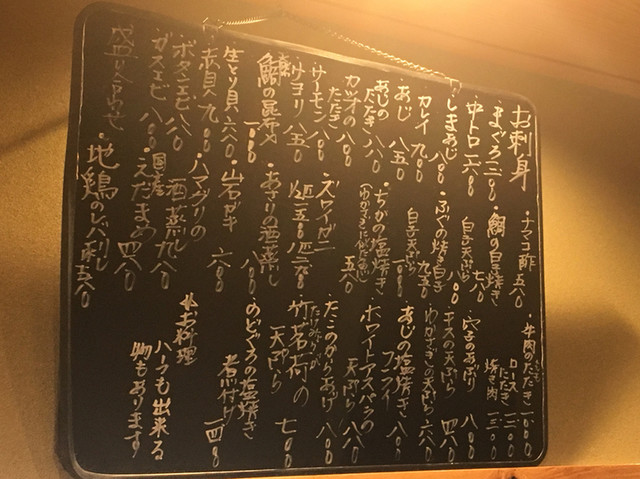 お刺身
・まぐろ 一二〇〇
中トロ 一六〇〇
・しまあじ 一八〇〇
カレイ 九〇〇
・あじ 八五〇
・あじのたたき 八八〇
カツオのたたき 八〇〇
・サーモン 八〇〇
・サヨリ 八五〇
鯛の昆布〆 一〇〇〇
生とり貝 八〇〇
・赤貝 九〇〇
・ボタンエビ 八八〇
ガスエビ 八〇〇
盛り合わせ
ナマコ酢 五八〇
・鯛の白子焼き 七八〇
白子天ぷら 八〇〇
・ふぐの焼き白子 九五〇
白子天ぷら 一〇〇〇
・ちかの塩焼き 五八〇
ズワイガニ
・あさりの酒蒸し 八〇〇
・岩ガキ 六〇〇
・ハマグリの酒蒸し 九八〇
国産えだまめ 四八〇
・地鶏のレバ刺し 五八〇
・牛肉のたたき 一〇〇〇
ロースたたき 一二〇〇
焼き肉 一三〇〇
・穴子のあぶり 八〇〇
キスの天ぷら 四八〇
わかさぎの天ぷら 六八〇
・あじの塩焼き
フライ 八〇〇
・ホワイトアスパラの天ぷら 八八〇
・たこのからあげ 八〇〇
・竹の子 茗荷の天ぷら 七〇〇
・のどぐろの塩焼き
煮付け 一四〇〇
※お料理
ハーフも出来る
物もあります